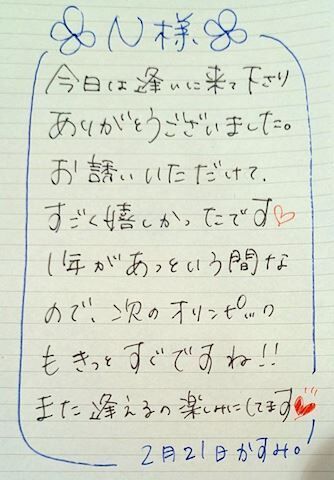 N様
今日は逢いに来て下さり
ありがとうございました。
お誘いいただけて、
すごく嬉しかったです♡
1年があっという間な
ので、次のオリンピック
もきっとすぐですね!!
また逢えるの楽しみにしてます♥
2月21日かすみ。